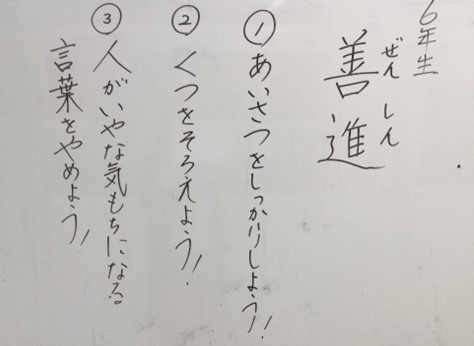 6年生
善進
ぜん しん
①あいさつをしっかりしよう!
②くつをそろえよう!
③人がいやな気もちになる
言葉をやめよう!